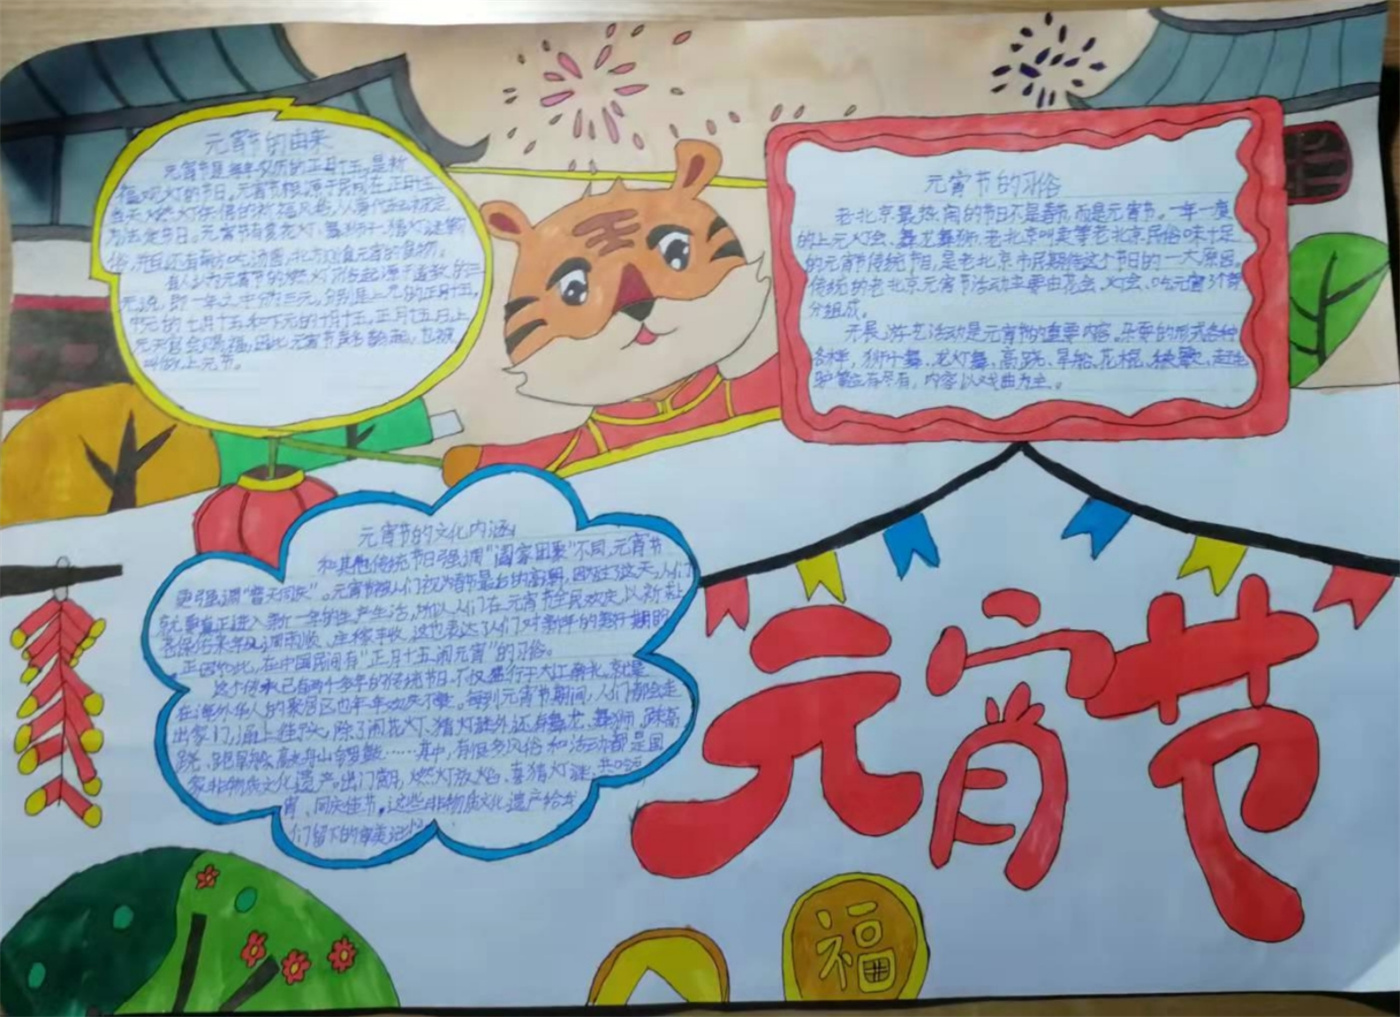 元宵节的由来
元宵节是每年农历的正月十五,是祈
福观灯的节日。元宵节根源于民间在正月十五
为法定节日。元宵节有赏花灯、舞狮子、猜灯谜等
俗,而且还有南方吃汤圆,北方吃食元宵的食物。
有人认为元宵节的燃灯习俗起源于道教的三
元说,即一年之中分三元,分别是上元的正月十五,
中元的七月十五和下元的十月十五,正月十五日上
元天官会赐福,因此元宵节
叫做上元节。
元宵节的习俗
老北京最热闹的节日不是春节,而是元宵节。一年一度
的上元灯会、舞龙舞狮、老北京叫卖等老北京民俗味十足
的元宵节传统节目,是老北京市民期待这个节日的一大原因,
传统的老北京元宵节活动主要由花会、灯会、吃元宵3个部
分组成。
开展游艺活动是元宵节的重要内容。杂耍的形式各种
各样,狮子舞、龙灯舞、高跷、旱船、花棍、秧歌、
应有尽有,内容以戏曲为主。
元宵节的文化内涵
和其他传统节日强调“阖家团聚”不同,元宵节
更强调“普天同庆”。元宵节被人们视为春节最后的高潮,因为过了这天,人们
就要真正进入新一年的生产生活,所以人们在元宵节全民欢庆,以祈祷
来年风调雨顺、五谷丰收,这也表达了人们对新年的美好期盼
正因如此,在中国民间有“正月十五闹元宵”的习俗。
这个传承已有两千多年的传统节日,不仅盛行于大江南北,就是
在海外华人的聚居区也年年欢庆不衰。每到元宵节期间,人们都会走
出家门,涌上街头,除了闹花灯、猜灯谜外,还有舞龙、舞狮、踩高
跷、跑旱船、敲锣鼓……其中,有很多风俗和活动都是国
家非物质文化遗产。出门赏月、燃灯放焰、喜猜灯谜、共吃元
宵、同庆佳节。这些非物质文化遗产给我
们留下的审美记忆
元宵节
福